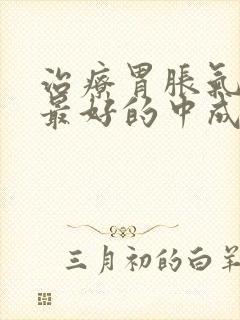 治疗胃胀氣
最好的中成
三月初的白羊